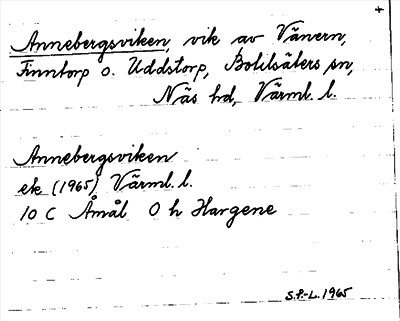 Annebergsviken, vik av Vänern,
Finntorp o. Uddstorp, Botilsäters sn,
Näs hd, Värml. l.
Annebergsviken
ek (1965) Värml. l.
10 C Åmål 0 h Hargene
S.P.-L. 1965